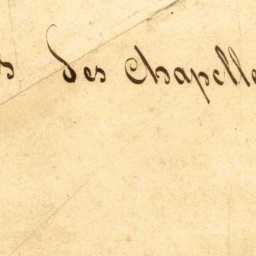 s des Chapelle